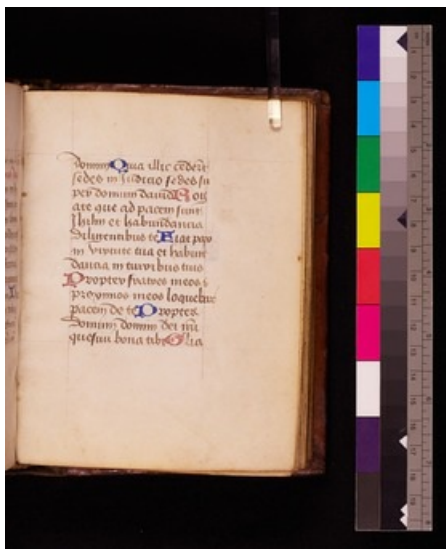 domini Quia illic cederūt
sedes in judicio sedes su
per domum david Rog
ate que ad pacem sunt
ihrlm et habundancia
diligentibus te Fiat pax
in virtute tua et habun
dancia in turribus tuis
Propter fratres meos i
proximos meos loquebar
pacem de te Propter
domum domini dei nr̄i
quesivi bona tibi Glia